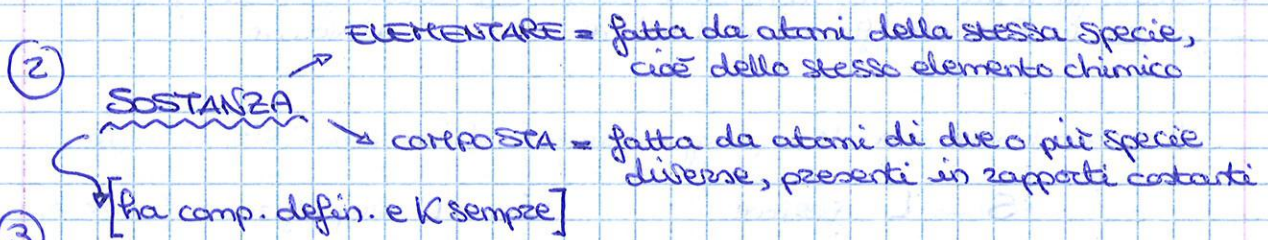 2
ELEMENTARE = fatta da atomi della stessa specie,
cioè dello stesso elemento chimico
SOSTANZA
COMPOSTA = fatta da atomi di due o più specie
diverse, presenti in rapporti costanti
[ha comp. defin. e K sempre]
3